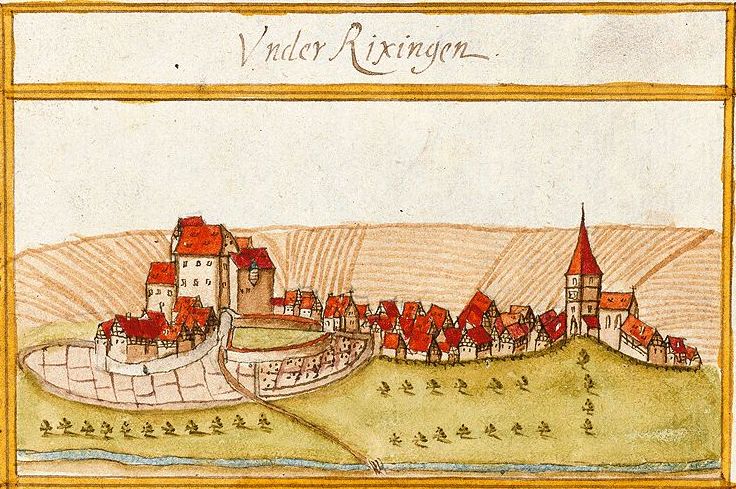 Vnder Rixingen